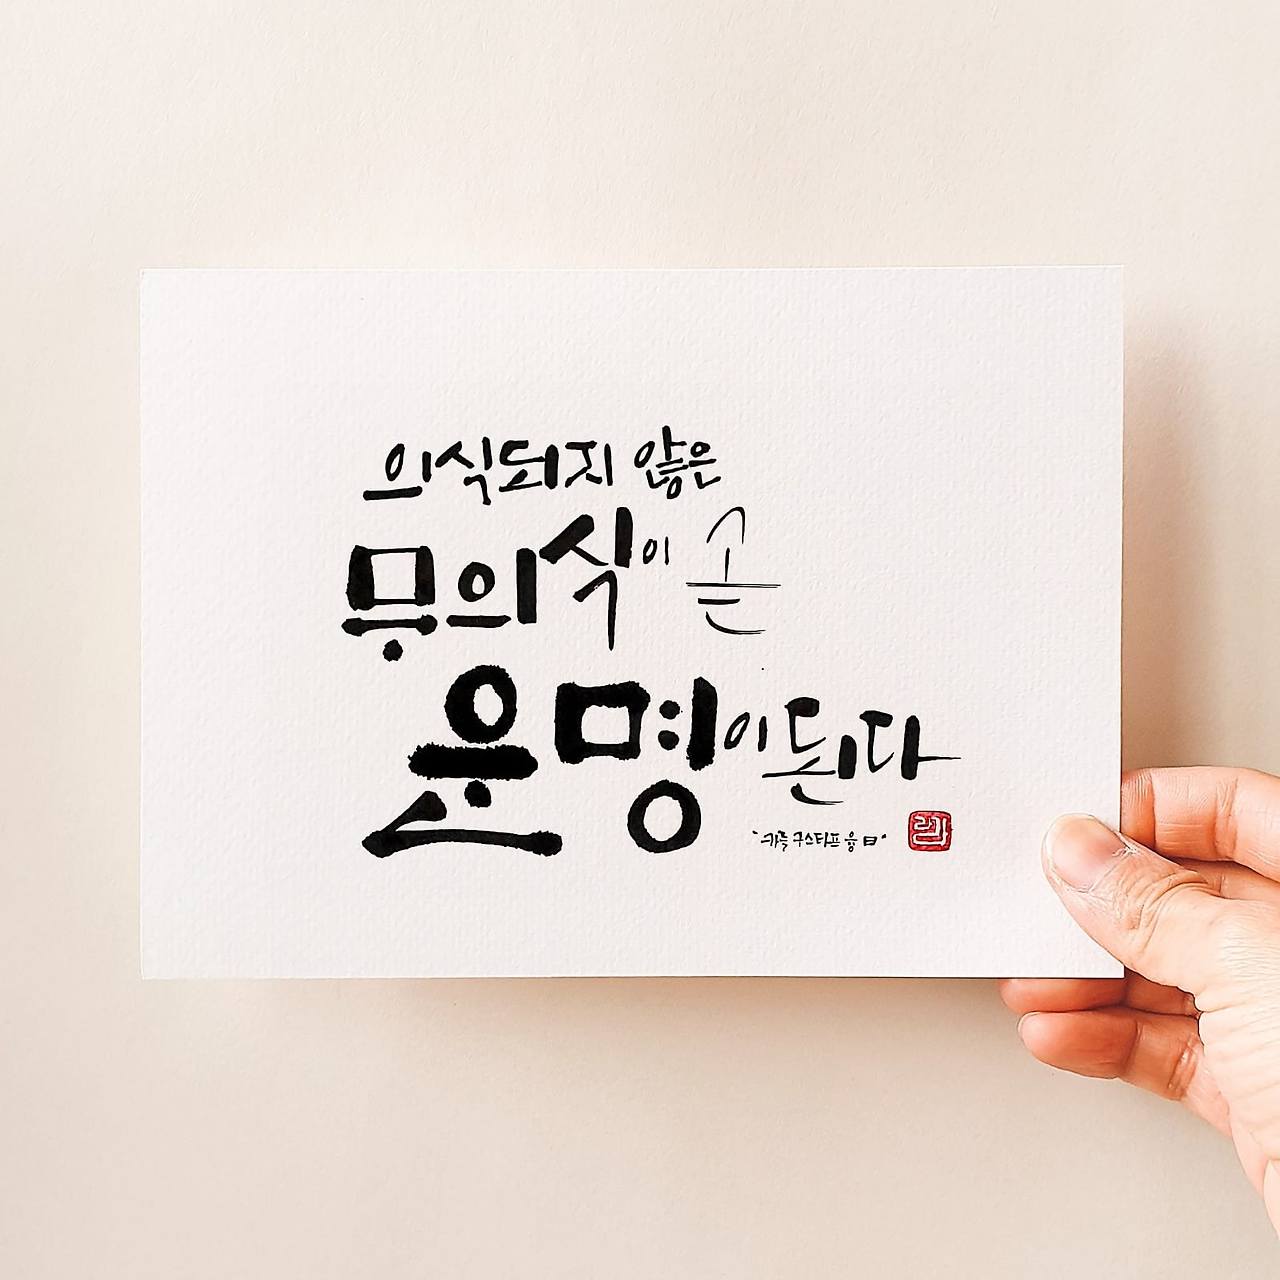 의식되지 않은
무의식이 곧
운명이 된다
"카를 구스타프 융 曰"